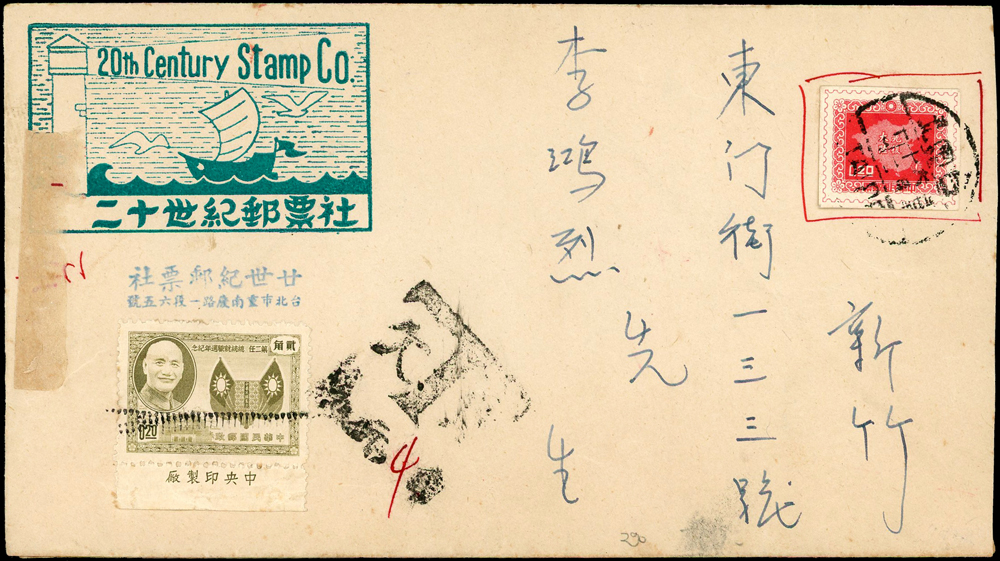 20th Century Stamp Co.
二十世紀郵票社
廿世紀郵票社
台北市重慶南路一段六五號
貳角
第二任總統就職週年紀念
中華民國郵政
0.20
中央印製廠
0.20
新竹
東门街一三三號
李鴻烈先生
欠
4
290